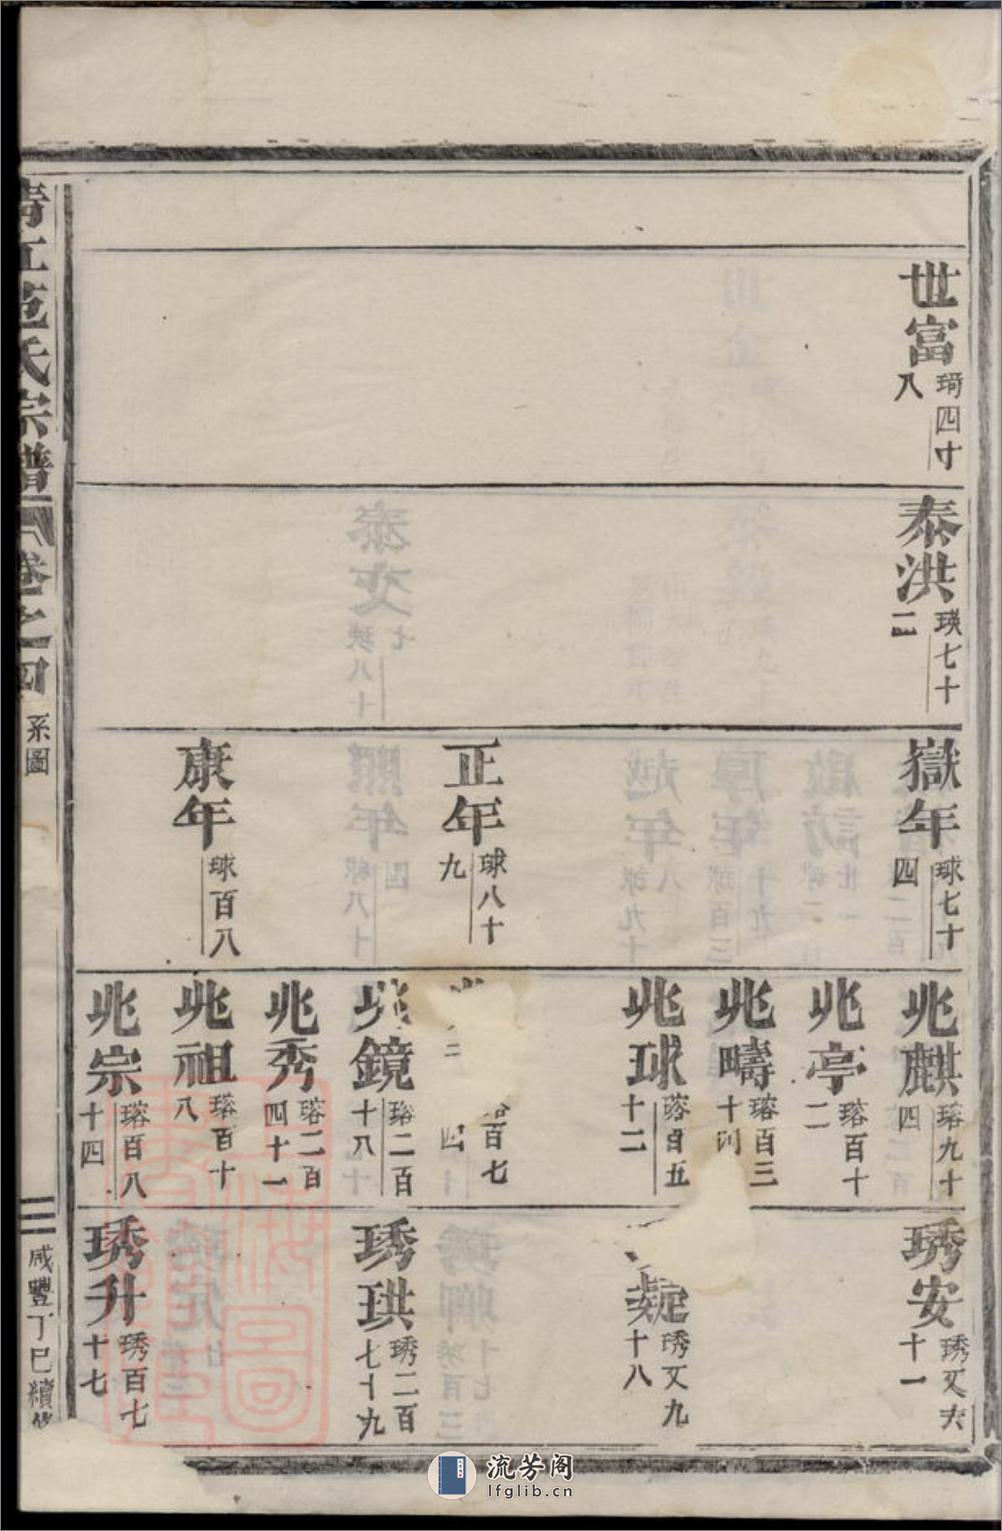 世富 琦四十八
泰洪 瑛七十二
嶽年 球七十四
正年 球八十九
康年 球百八
兆麒 瑢九十四
兆亭 瑢百十二
兆疇 瑢百三十四
兆球 瑢百五十二
百七 四
兆鏡 瑢二百十八
兆秀 瑢二百四十一
兆祖 瑢百十八
兆宗 瑢百八十四
琇安 琇又六十一
琇又九十八
琇珙 琇二百七十九
琇升 琇百七十七
江范氏宗譜 卷之四 系圖 三 咸豐丁巳續修
流芳阁
lfglib.cn